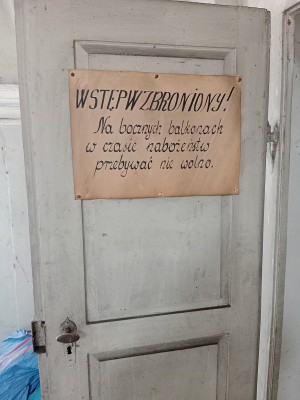 WSTĘP WZBRONIONY!
Na bocznych balkonach
w czasie nabożeństw
przebywać nie wolno.